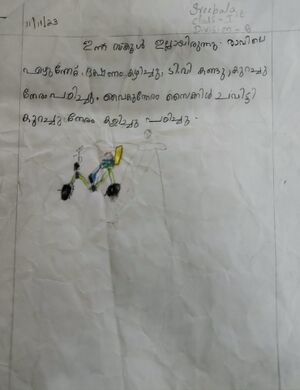 11/11/23
Sreebala
Class - I
Division - B
ഇന്ന് സ്കൂൾ ഇല്ലായിരുന്നു. രാവിലെ
എഴുന്നേറ്റ് ഭക്ഷണം കഴിച്ചു, ടി.വി കണ്ടു, കുറച്ചു
നേരം പഠിച്ചു. വൈകുന്നേരം സൈക്കിൾ ചവിട്ടി
കുറച്ചു നേരം കളിച്ചു പഠിച്ചു.